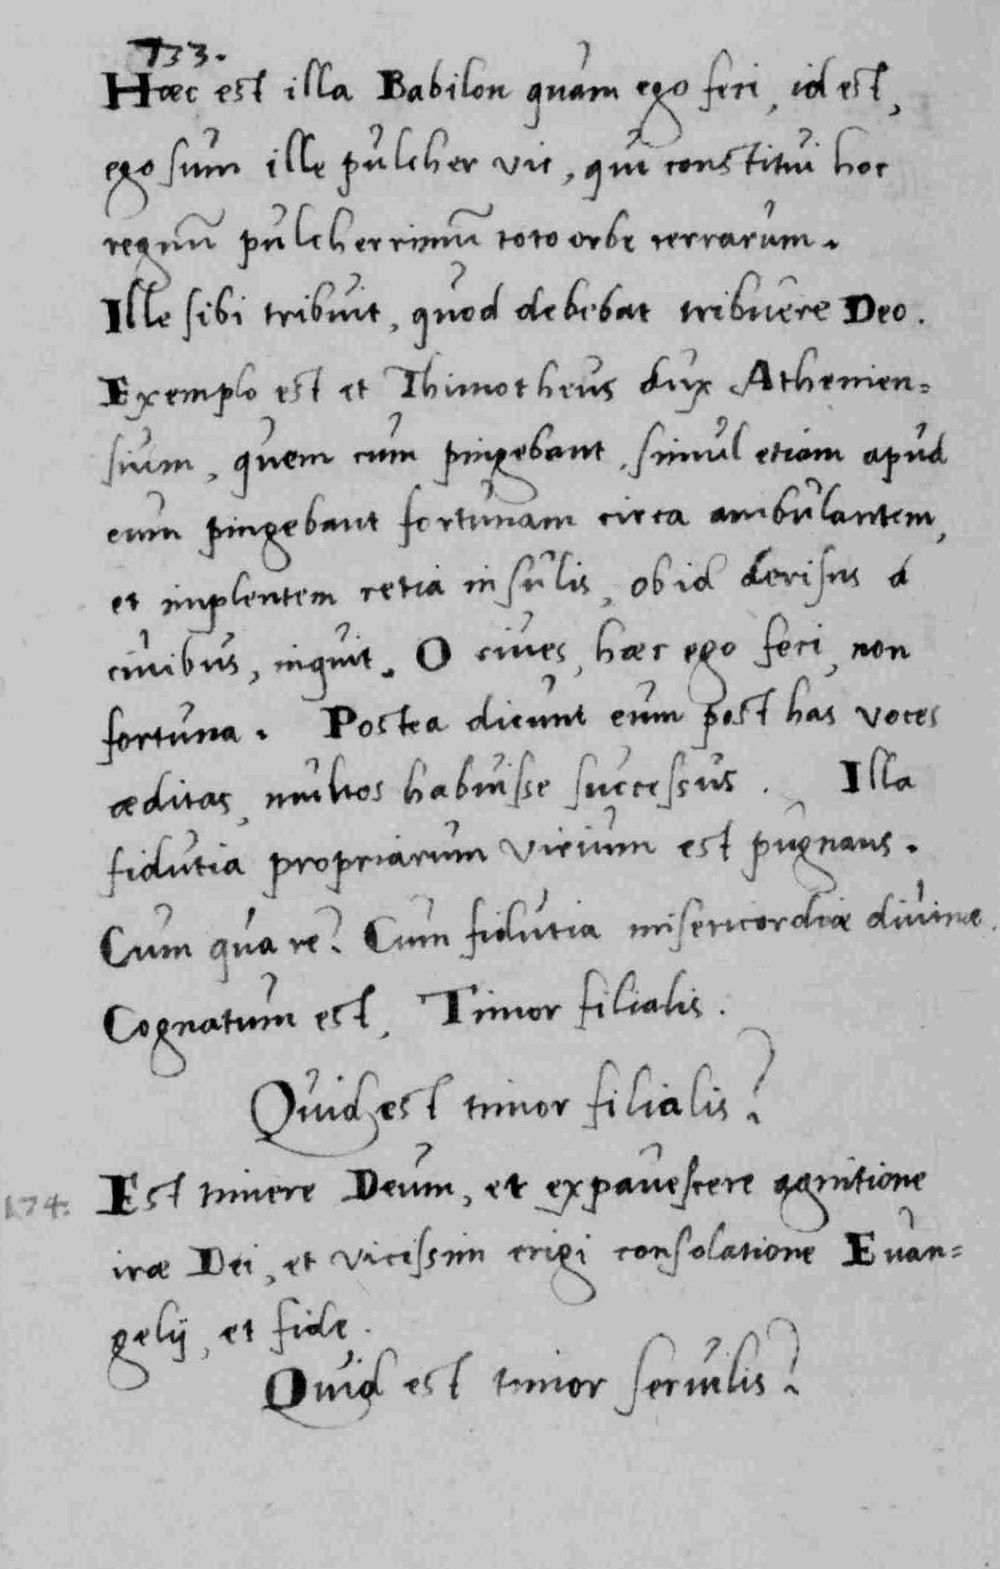 733.
Hæc est illa Babilon quam ego feci, id est,
ego sum ille pulcher vir, qui constitui hoc
regnū pulcherrimū toto orbe terrarum.
Ille sibi tribuit, quod debebat tribuere Deo.
Exemplo est et Thimotheus dux Athenien=
sium, quem cum pingebant, simul etiam apud
eum pingebant fortunam circa ambulantem,
et implentem retia insulis, ob id derisus á
ciuibus, inquit. O ciues, hæc ego feci, non
fortuna. Postea dicunt eum post has voces
æditas, multos habuisse successus. Illa
fidutia propriarum virium est pugnans.
Cum qua re? Cum fidutia misericordiæ diuinæ.
Cognatum est, Timor filialis.
Quid est timor filialis?
174. Est timere Deum, et expauescere agnitione
iræ Dei, et vicissim erigi consolatione Euan=
gelij, et fide.
Quid est timor seruilis?